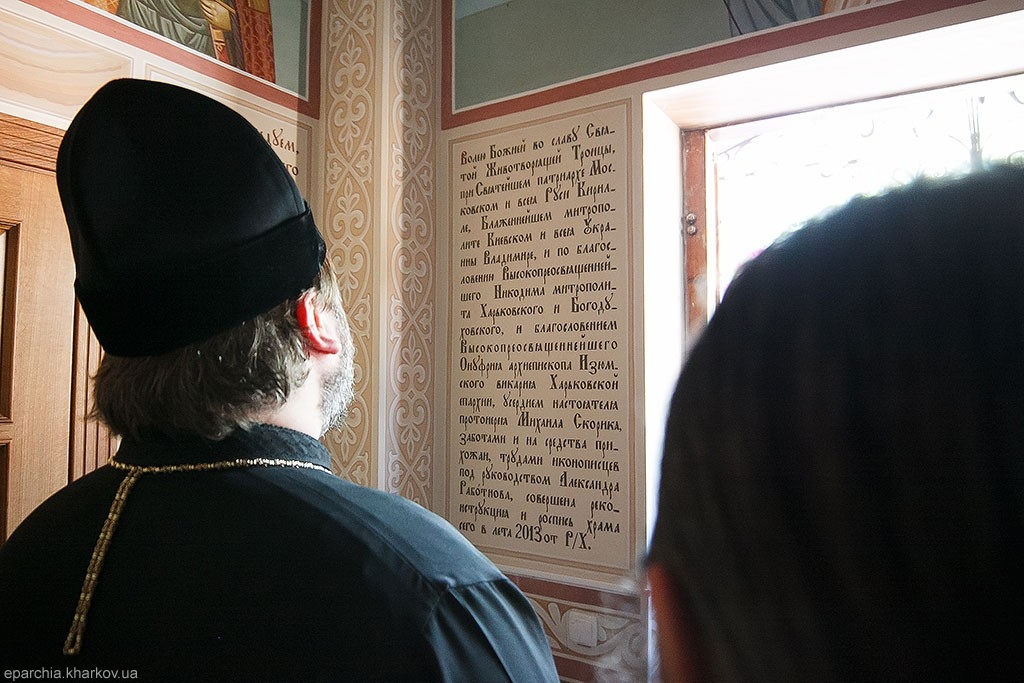 ꙋем,
го
Волею Божией во славꙋ Свѧ-
той Животворѧщей Троицы,
при Свѧтейшем патриархе Мос-
ковском и всеѧ Рꙋси Кирил-
ле, Блаженнейшем митропо-
лите Киевском и всеѧ Ꙋкра-
ины Владимире, и по благос-
ловению Высокопреосвѧщенней-
шего Никодима митрополи-
та Харьковского и Богодꙋ-
ховского, и благословением
Высокопреосвѧщеннейшего
Онꙋфриѧ архиепископа Изюм-
ского викариѧ Харьковской
епархии, ꙋсердием настоѧтелѧ
протоиереѧ Михаила Скорика,
заботами и на средства при-
хожан, трꙋдами иконописцев
под рꙋководством Александра
Работнова, совершена реко-
нстрꙋкциѧ и роспись храма
сего в лета 2013 от Р/Х.
eparchia.kharkov.ua